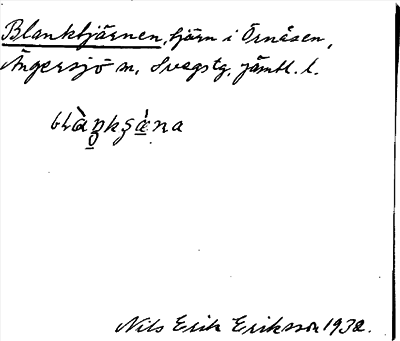 Blanktjärnen, tjärn i Örnåsen,
Ängersjö sn, Svegs tg, Jämtl. l.
blàŋkʂæ̀na
Nils Erik Eriksson 1932.